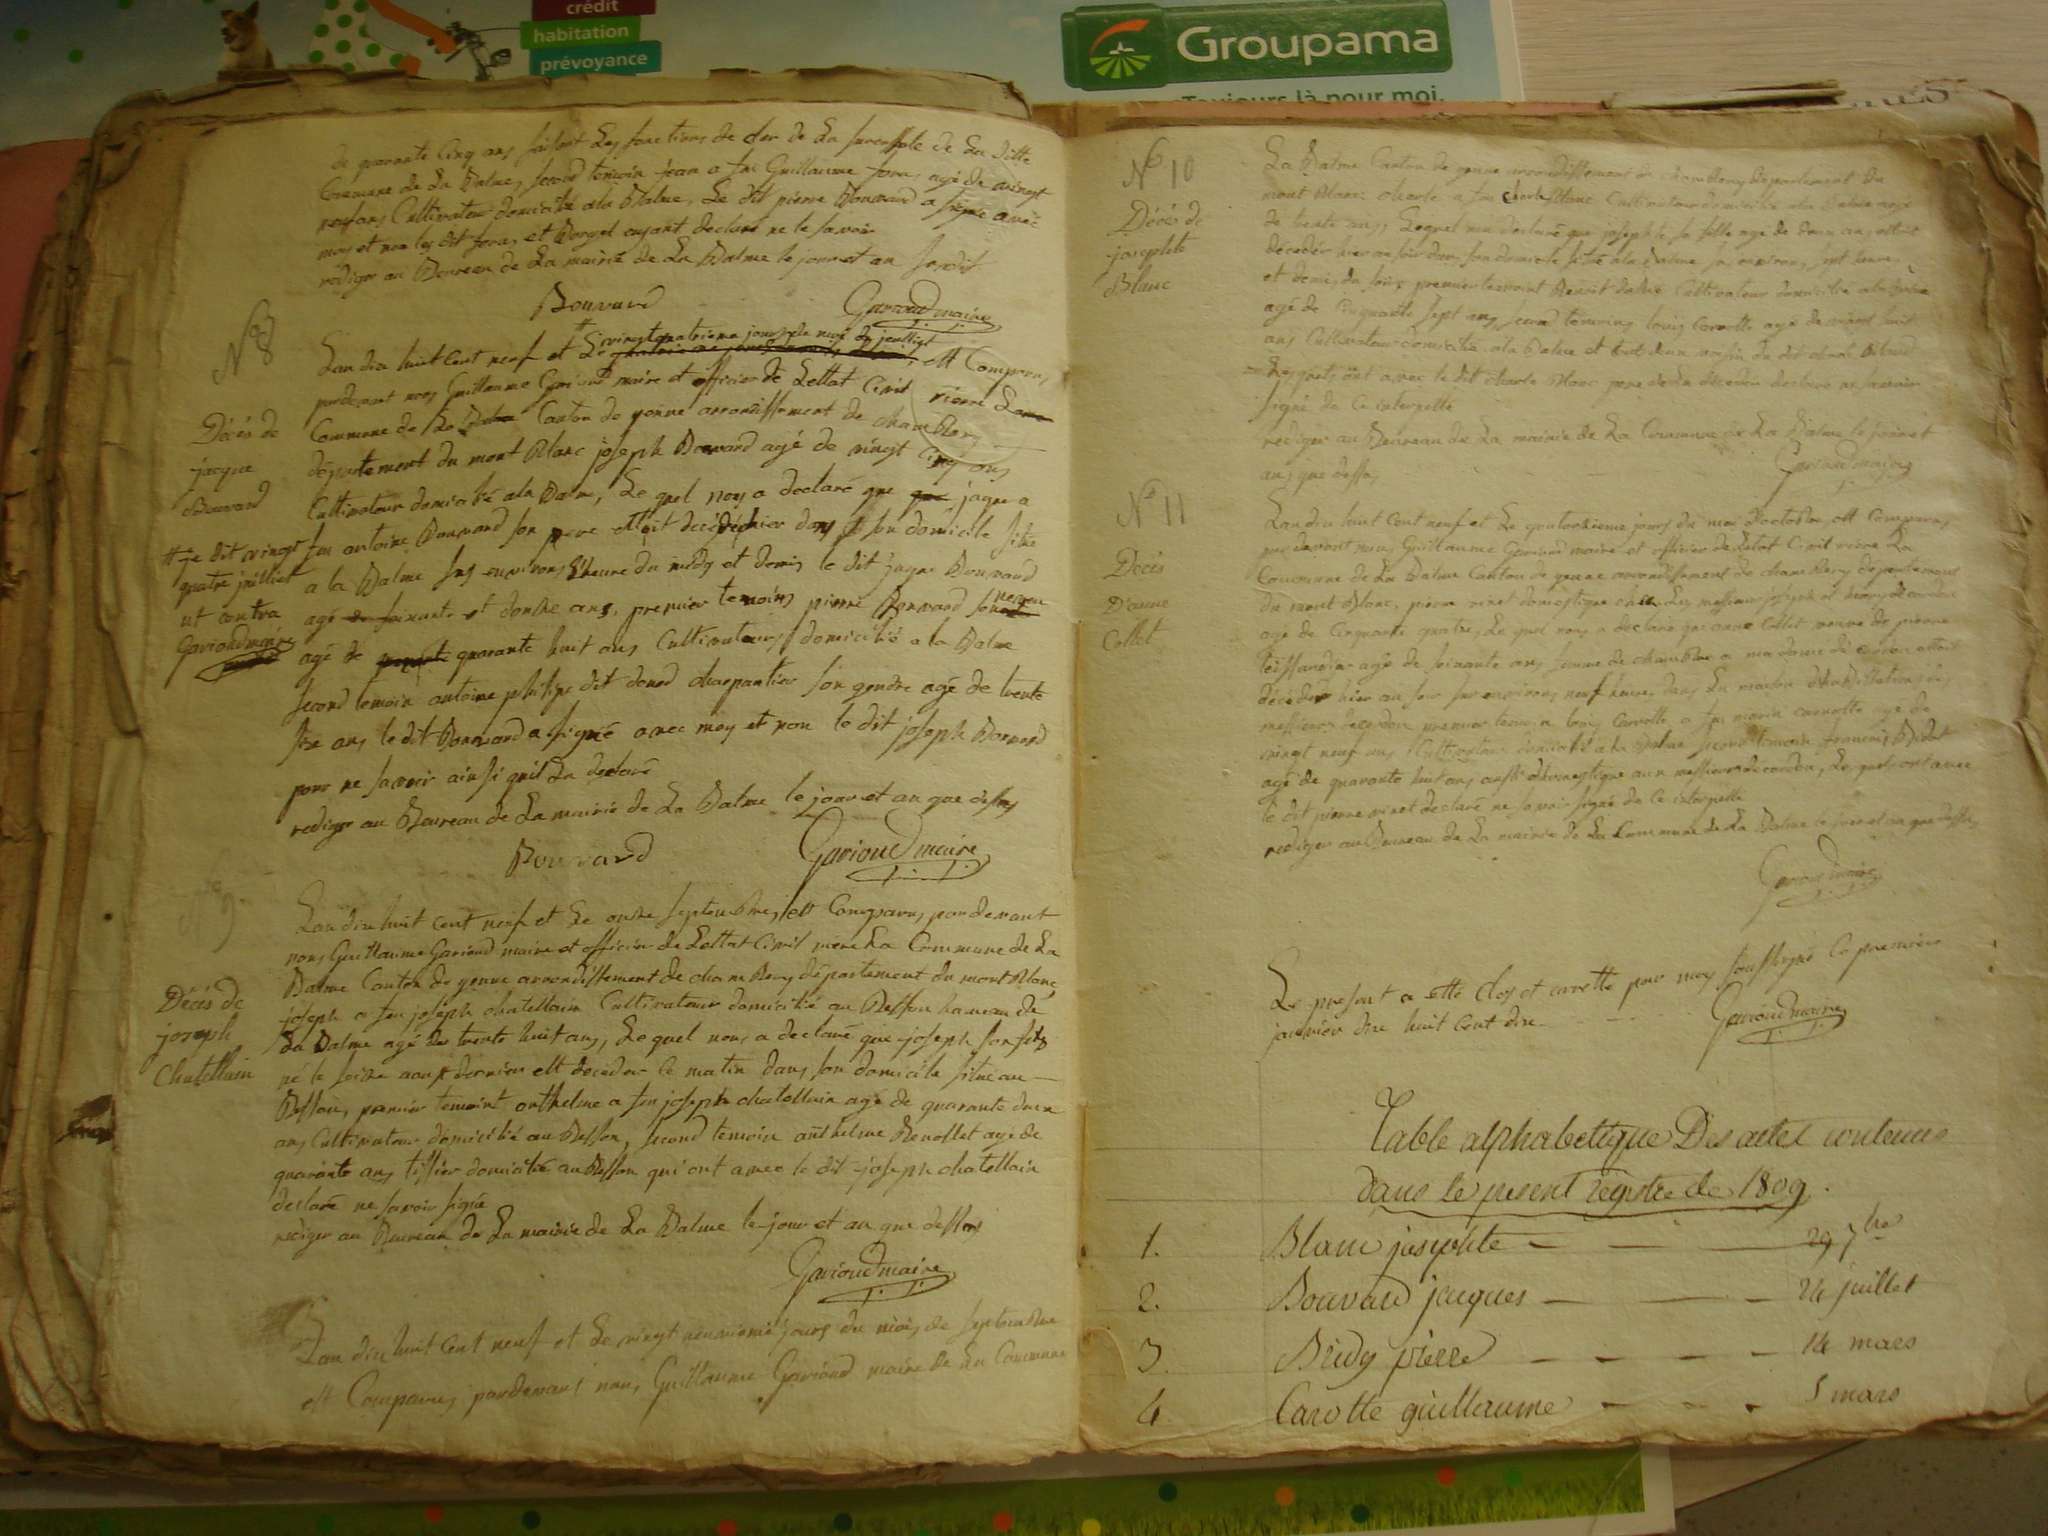 crédit
habitation
prévoyance
Groupama
Toujours là pour moi.
de quarante cinq ans faisant les fonctions de cler de La
Commune de La Balme, second temoin jean a feu Guillaume foras agé de vingt
neuf ans Cultivateur domicilié a la Balme, Le dit pierre Bouvard a signé avec
moy et non les dit foras et Borgel ayant declaré ne le savoir
rediger au Beureau de La mairie de La Balme le jour et an susdit
Bouvard Gavioud maire
N° 8
Décés de
jacque
Bouvard
vingt quatrieme jours de mois de juilliet
Lan dix huit cent neuf et Le est Comparus
pardevant nous Guillaume Gavioud maire et officier de Lettat Civil
Commune de La Balme Canton de yenne arrondissement de chambery
département du mont Blanc joseph Bouvard agé de vingt cinq ans
Cultivateur domicilié a la Balme, Le quel nous a declaré que jaque a
feu antoine Bouvard son pere ettoit decédé hier dans son domicile situé
a la Balme sus environs l'heure du midy et demis le dit jaque Bouvard
agé de soixante et douze ans, premier temoins pierre Bouvard son neveu
agé de quarante huit ans Cultivateurs domicilié a la Balme
second temoin antoine philipe dit doned charpantier son gendre agé de trente
six ans le dit Bouvard a signé avec moy et non le dit joseph Bouvard
pour ne savoir ainsi quil La declaré
rediger au Beureau de La mairie de La Balme le jour et an que dessus
Bouvard Gavioud maire
je dit vingt
quatre juilliet
ut contra
Gavioud maire
N° 9
Décés de
joseph
Chatellain
Lan dix huit cent neuf et Le onze septembre, est Comparus pardevant
nous Guillaume Gavioud maire et officier de Lettat Civil La Commune de La
Balme Canton de yenne arrondissement de chambery département du mont Blanc
joseph a feu joseph chatellain Cultivateur domicilié au Besson hameau de
La Balme agé de trente huit ans, Le quel nous a declaré que joseph son fils
né le seize aoust dernier est decedé ce matin dans son domicile situé au
Besson, premier temoint anthelme a feu joseph chatellain agé de quarante deux
ans Cultivateur domicilié au Besson, second temoin anthelme agé de
quarante ans tissier domicilié au Besson qui ont avec le dit joseph chatellain
declaré ne savoir signé
rediger au Bureau de La mairie de La Balme le jour et an que dessus
Gavioud maire
Lan dix huit cent neuf et Le vingt neuvieme jours du mois de septembre
est Comparus pardevant nous Guillaume Gavioud maire de La Commune
N° 10
Décés de
josephte
Blanc
La Balme Canton de yenne arrondissement de chambery département du
mont Blanc charle a feu charle Blanc Cultivateur domicilié a la Balme agé
de trente ans, Lequel ma declaré que josephte sa fille agé de deux ans ettoit
décédée hier au soir dans son domicile situé a la Balme sus environs sept heures
et demis du soir, premier temoint Benoit Cultivateur domicilié a la Balme
agé de cinquante sept ans, second temoins louis Carotte agé de vingt huit
ans Cultivateur domicilié a la Balme et tout deux voisin du dit charle Blanc
Lesquels ont avec le dit charle Blanc pere de La décédée declaré ne savoir
signé de ce interpellé
rediger au Beureau de La mairie de La Commune de La Balme le jour et
an que dessus
Gavioud maire
N° 11
Décés
D'anne
Collet
Lan dix huit cent neuf et Le quatorzieme jours du moi d'octobre, est Comparus
par devant nous Guillaume Gavioud maire et officier de Letat Civil La
Commune de La Balme Canton de yenne arrondissement de chambery département
du mont Blanc, pierre vinet domestique chez Les messieurs joseph et de cordon
agé de Cinquante quatre, Le quel nous a declaré que anne Collet veuve de pierre
agé de soixante ans femme de chambre a madame de cordon ettoit
décédée hier au soir sus environs neuf heures dans La maison d'habittation des
messieurs de cordon premier temoin louis Carrotte a feu Carrotte agé de
vingt neuf ans Cultivateur domicilié a la Balme second temoin francois
agé de quarante huit ans aussi domestique aux messieurs de cordon, Lesquels ont avec
le dit pierre vinet declaré ne savoir signé de ce interpellé
rediger au Beureau de La mairie de La Commune de La Balme le jour et an que dessus
Gavioud maire
Le present a etté clos et arretté par moy soussigné ce premier
janvier dix huit cent dix
Gavioud maire
Table alphabetique Des actes contenus
dans le present registre de 1809.
1. Blanc josephte — 29 7bre
2. Bouvard jacques — 24 juillet
3. Bridy pierre — 14 mars
4. Carotte guillaume — 5 mars